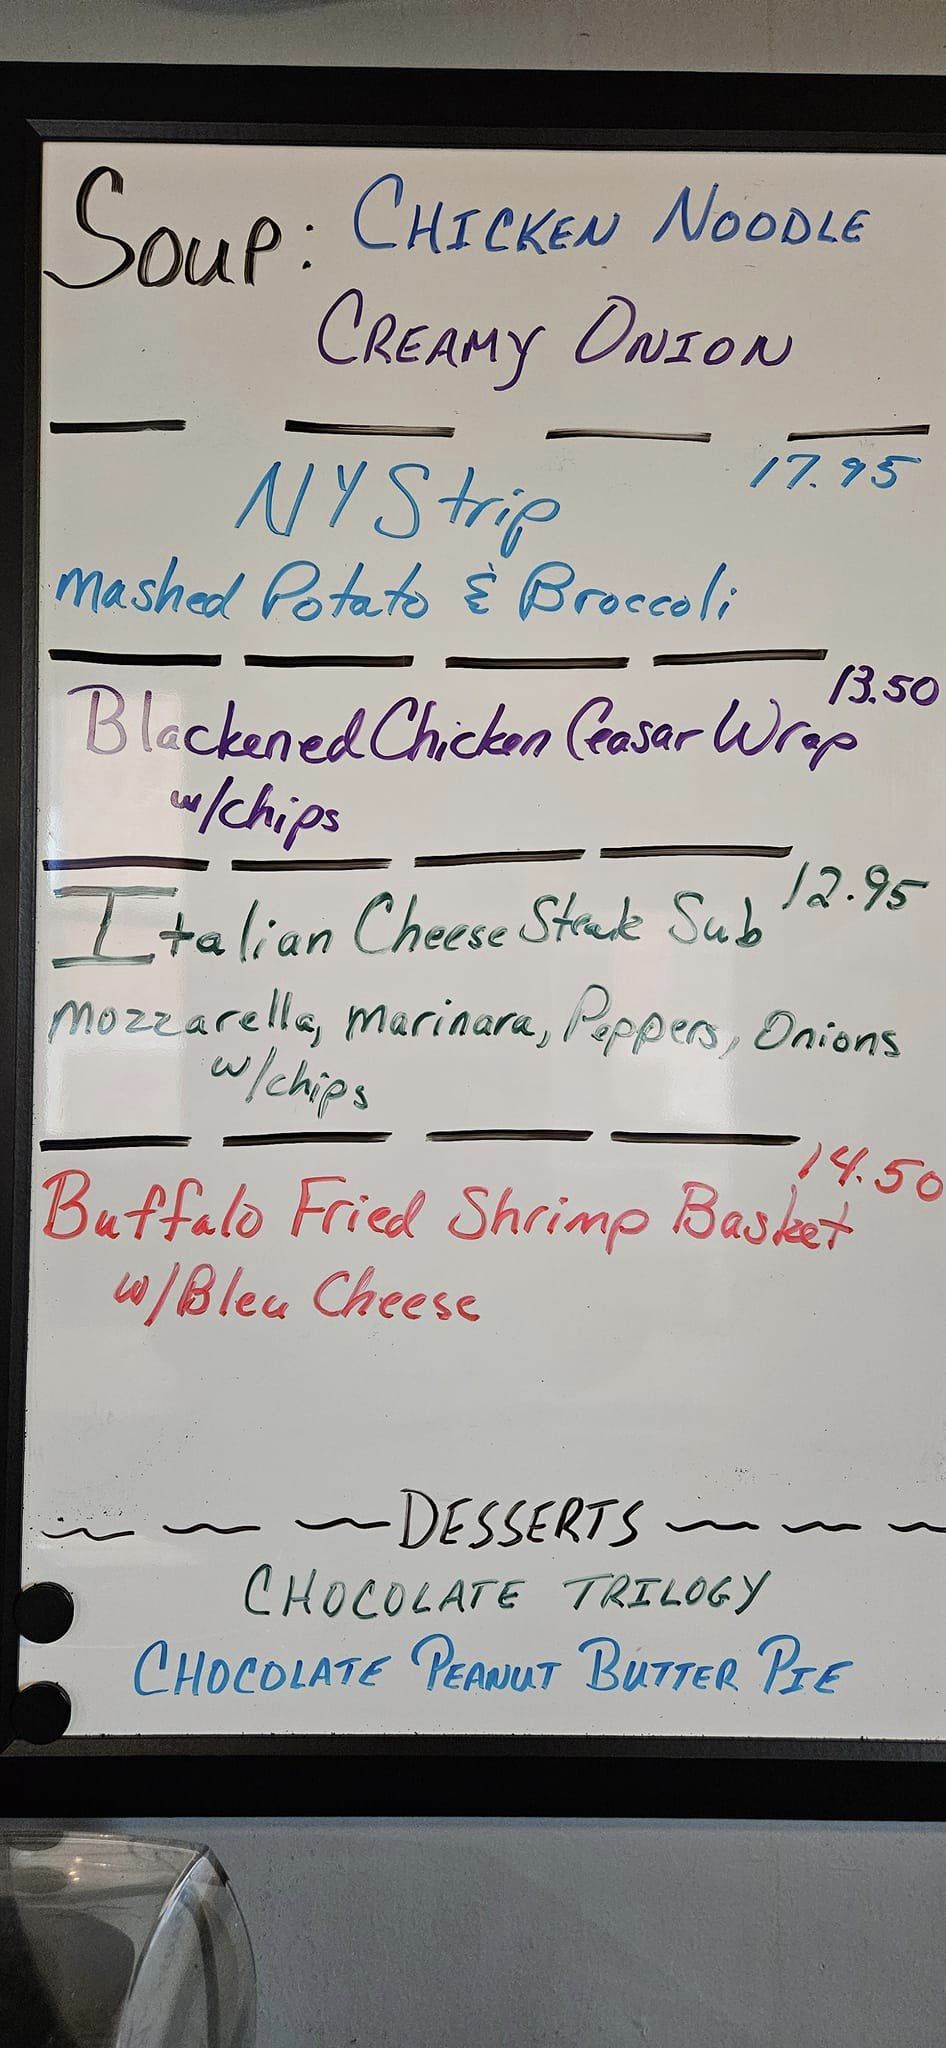 Soup: CHICKEN NOODLE
CREAMY ONION
17.95
NY Strip
Mashed Potato & Broccoli
13.50
Blackened Chicken Ceasar Wrap
w/chips
12.95
Italian Cheese Steak Sub
Mozzarella, Marinara, Peppers, Onions
w/chips
14.50
Buffalo Fried Shrimp Basket
w/Bleu Cheese
DESSERTS
CHOCOLATE TRILOGY
CHOCOLATE PEANUT BUTTER PIE